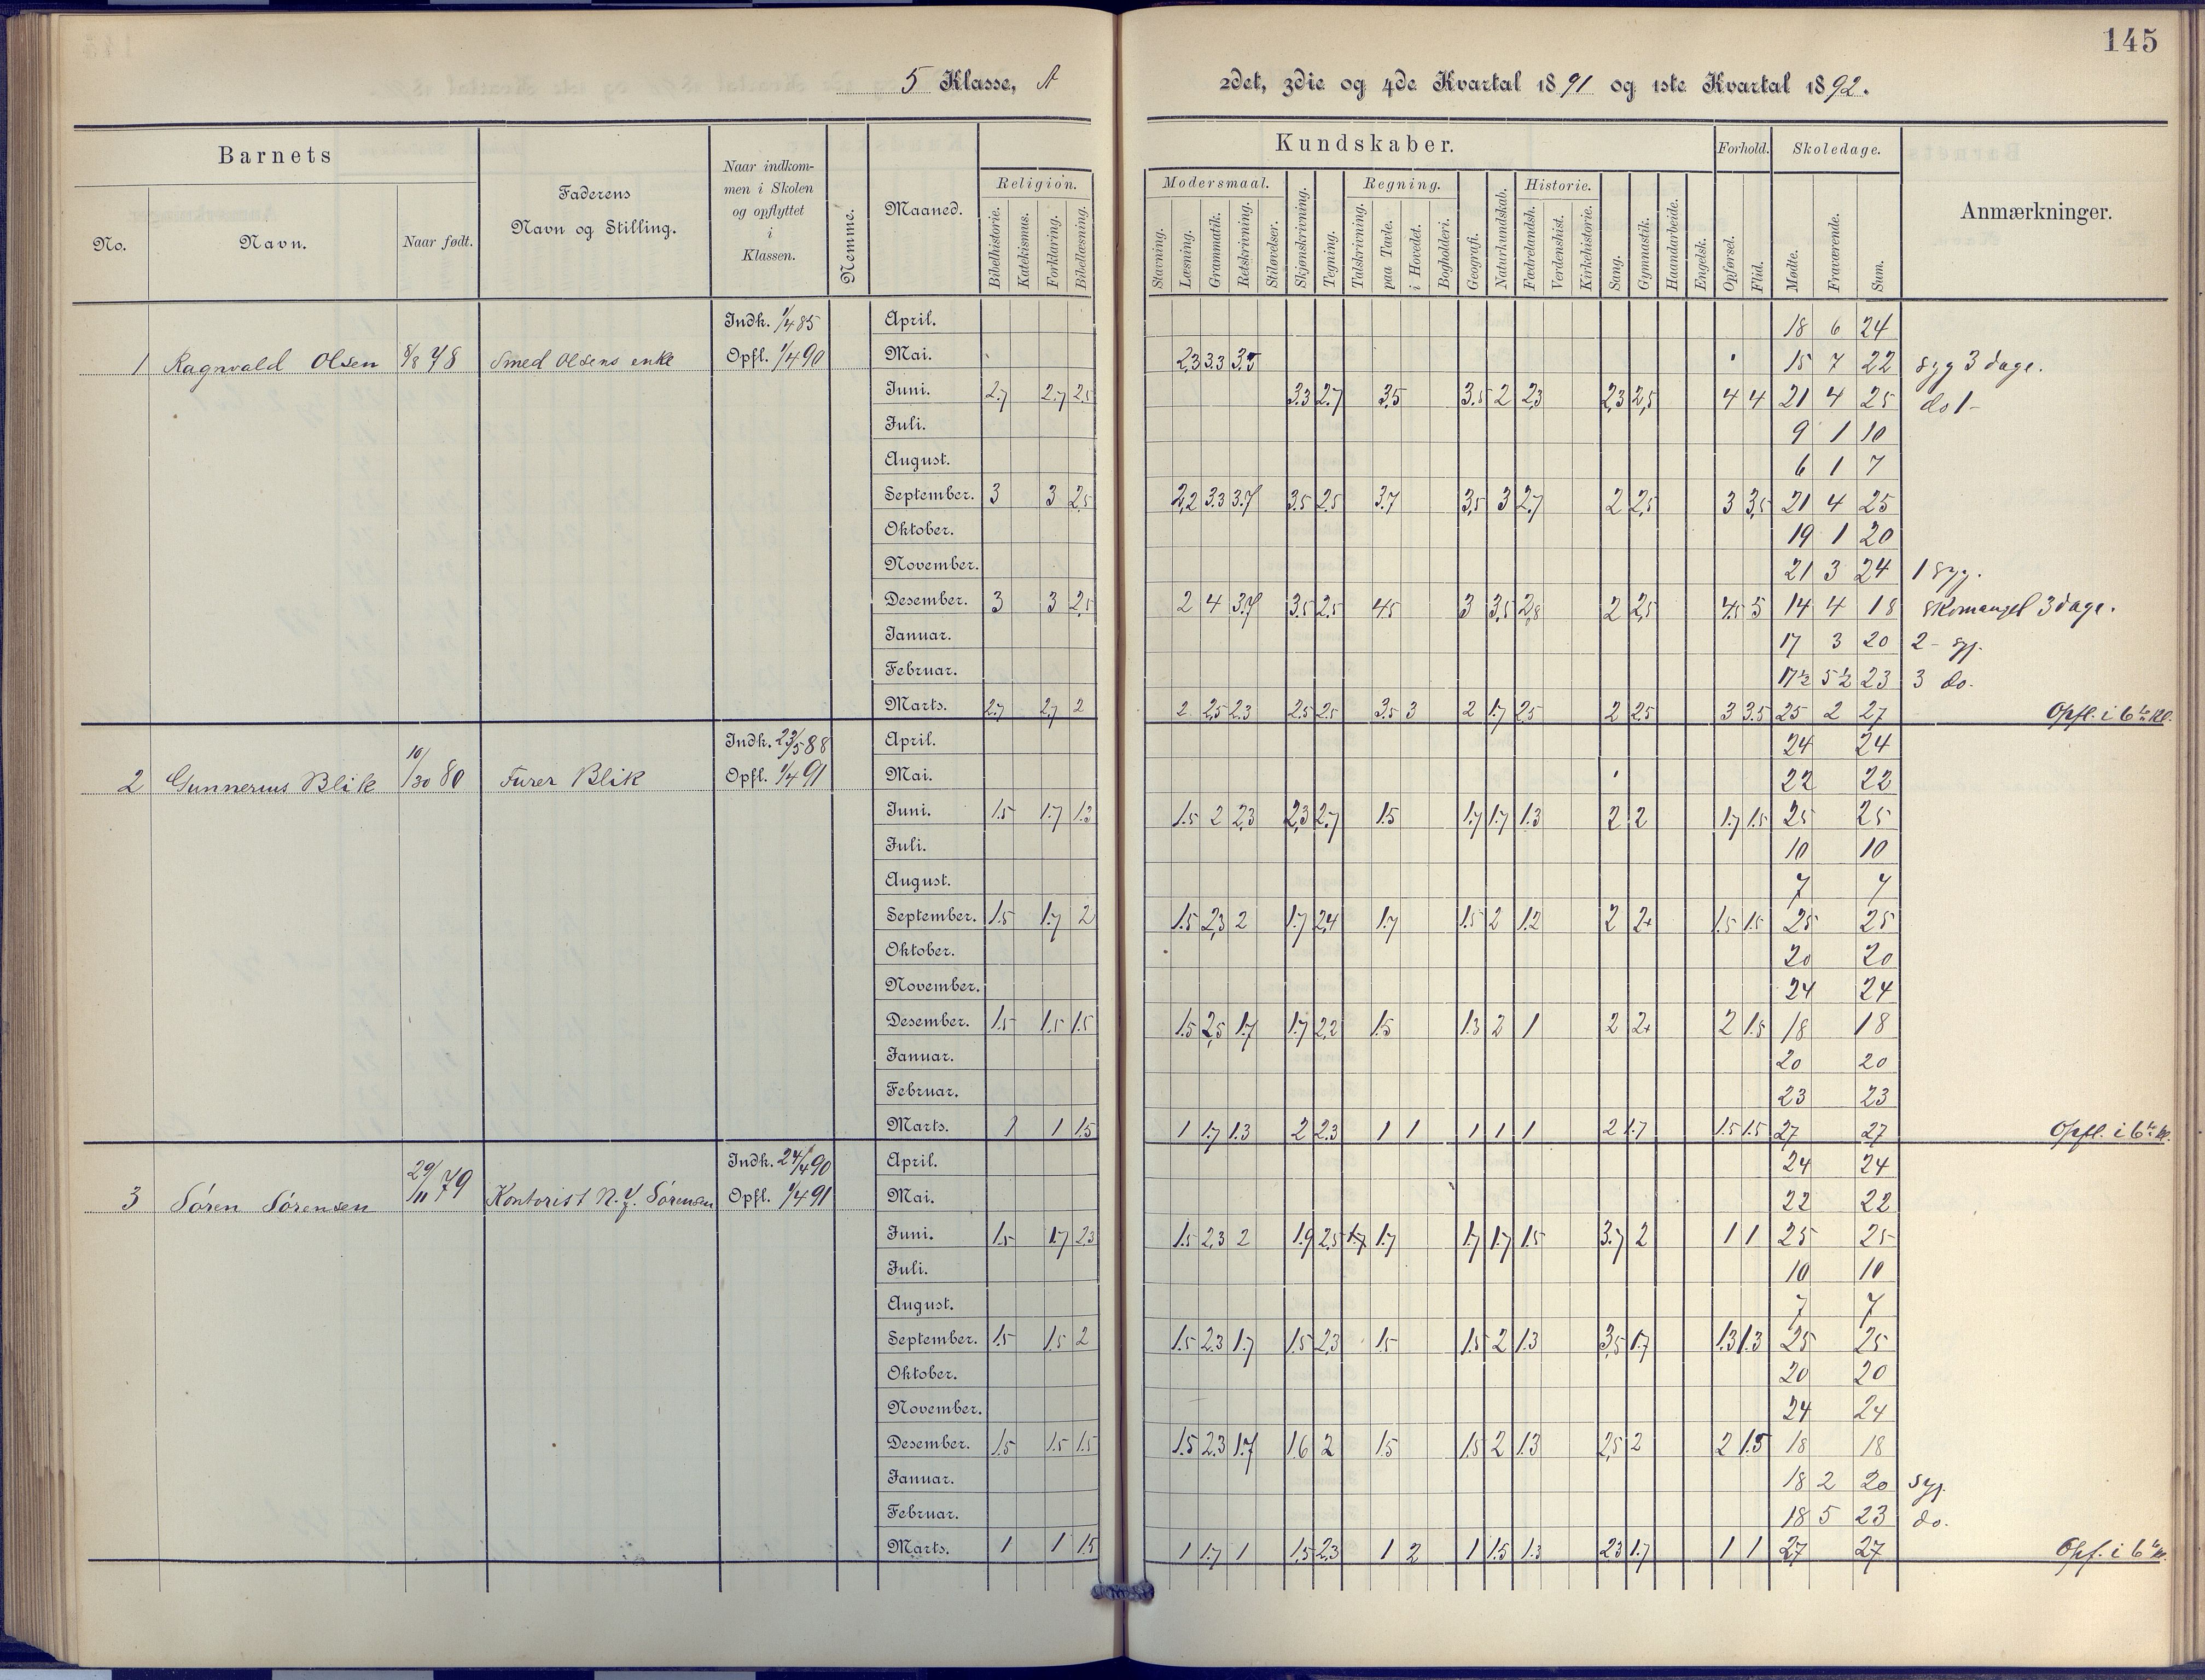 145
5 Klasse, A 2det, 3die og 4de Kvartal 1891 og 1ste Kvartal 1892.
Barnets
No. Navn. Naar født.
Faderens
Navn og Stilling.
Naar indkom-
men i Skolen
og opflyttet
i
Klassen.
Nemme.
Maaned.
Kundskaber.
Religion.
Bibelhistorie. Katekismus. Forklaring. Bibellæsning.
Modersmaal.
Stavning. Læsning. Grammatik. Retskrivning. Stiløvelser.
Skjønskrivning. Tegning.
Regning.
Talskrivning. paa Tavle. i Hovedet. Bogholderi.
Geografi. Naturkundskab.
Historie.
Fædrelandsh. Verdenshist. Kirkehistorie.
Sang. Gymnastik. Haandarbeide. Engelsk.
Forhold.
Opførsel. Flid.
Skoledage.
Mødte. Fraværende. Sum.
Anmærkninger.
1 Ragnvald Olsen 8/8 78 Smed Olsens enke Indk. 1/4 85 Opfl. 1/4 90
April. 18 6 24
Mai. 2,3 3.3 3.5 15 7 22 syg 3 dage.
Juni. 2.7 2.7 2.5 3.3 2.7 3.5 3.5 2 2,3 2,3 2,5 4 4 21 4 25 do 1 -
Juli. 9 1 10
August. 6 1 7
September. 3 3 2.5 2,2 3.3 3.7 3.5 2.5 3.7 3,5 3 2.7 2 2,5 3 3,5 21 4 25
Oktober. 19 1 20
November. 21 3 24 1 syg.
Desember. 3 3 2.5 2 4 3.7 3.5 2.5 4.5 3 3,5 2,8 2 2,5 4.5 5 14 4 18 skomangel 3 dage.
Januar. 17 3 20 2 - syg.
Februar. 17½ 5½ 23 3 do.
Marts. 2.7 2.7 2 2 2.5 2.3 2.5 2.5 3.5 3 2 1.7 2.5 2 2.5 3 3.5 25 2 27 Opfl. i 6te Kl.
2 Gunnerius Blik 10/30 80 Furer Blik Indk. 23/5 88 Opfl. 1/4 91
April. 24 24
Mai. 22 22
Juni. 1.5 1.7 1.3 1.5 2 2,3 2,3 2.7 1.5 1.7 1.7 1.3 2 2 1.7 1.5 25 25
Juli. 10 10
August. 7 7
September. 1.5 1.7 2 1.5 2,3 2 1.7 2.4 1.7 1.5 2 1.2 2 2+ 1.5 1.5 25 25
Oktober. 20 20
November. 24 24
Desember. 1.5 1.5 1.5 1.5 2,5 1.7 1.7 2.2 1.5 1.3 2 1 2 2+ 2 1.5 18 18
Januar. 20 20
Februar. 23 23
Marts. 1 1 1.5 1 1.7 1.3 2 2.3 1 1 1 1 1 2 1.7 1.5 1.5 27 27 Opfl. i 6te kl.
3 Søren Sørensen 29/11 79 Kontorist N. J. Sørensen Indk. 24/4 90 Opfl. 1/4 91
April. 24 24
Mai. 22 22
Juni. 1.5 1.7 2.3 1.5 2.3 2 1.9 2.5 1.7 1.7 1.7 1.7 1.5 3.7 2 1 1 25 25
Juli. 10 10
August. 7 7
September. 1.5 1.5 2 1.5 2.3 1.7 1.5 2.3 1.5 1.5 2 1.3 3,5 1.7 1.3 1.3 25 25
Oktober. 20 20
November. 24 24
Desember. 1.5 1.5 1.5 1.5 2.3 1.7 1.6 2 1.5 1.5 2 1.3 2,5 2 2 1.5 18 18
Januar. 18 2 20 syg.
Februar. 18 5 23 do.
Marts. 1 1 1.5 1 1.7 1 1,5 2.3 1 2 1 1.5 1.3 2.3 1.7 1 1 27 27 Opf. i 6te kl.